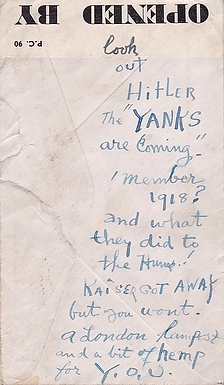 OPENED BY
P.C. 90
look
out
Hitler
The "YANKS
are Coming"
'member
1918?
and what
they did to
the Huns!
KAISER GOT AWAY
but you wont.
a London lampost
and a bit of hemp
for Y.O.U.